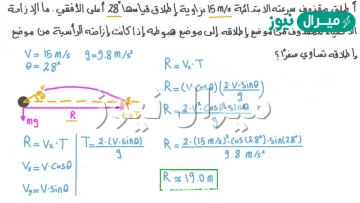 أطلق مقذوف سرعته الابتدائية 15 m/s بزاوية إطلاق قياسها 28° أعلى الأفقي. ما الإزاحة
الأفقية للمقذوف من موضع إطلاقه إلى موضع هبوطه إذا كانت إزاحته الرأسية من موضع
إطلاقه تساوي صفرًا؟
ميرال نيوز
V = 15 m/s g = 9.8 m/s²
θ = 28°
V
θ
mg
R
t = T
R = Vₓ · T
Vₓ = V · cosθ
Vy = V · sinθ
T = 2·(V·sinθ)/g
R = Vₓ · T
R = (V·cosθ)(2·V·sinθ)/g
R = 2·V²·cosθ·sinθ/g
R = 2·(15 m/s)²·cos(28°)·sin(28°)/9.8 m/s²
R ≈ 19.0 m
ميرال نيوز